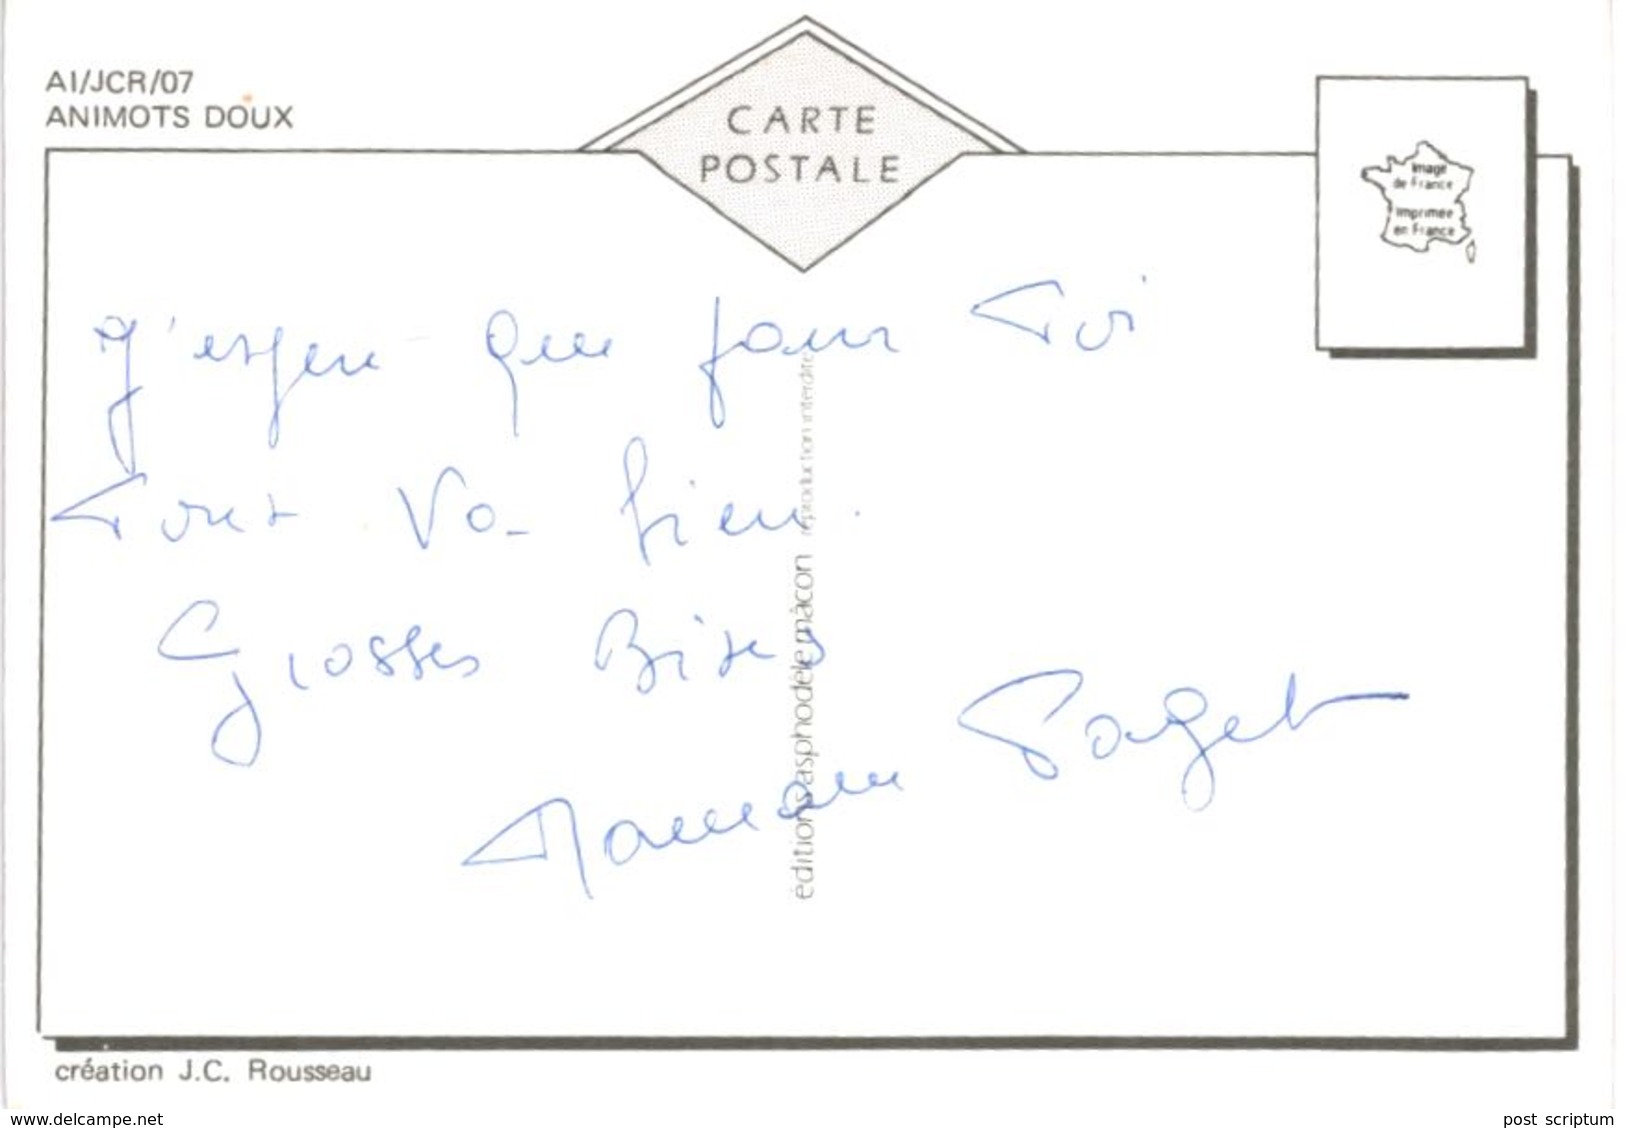 AI/JCR/07
ANIMOTS DOUX
CARTE
POSTALE
Image
de France
Imprimée
en France
J'espere que pour Toi
Tout Va bien.
Grosses Bises
Maman Paget
éditions asphodèle mâcon reproduction interdite
création J.C. Rousseau
www.delcampe.net
post scriptum